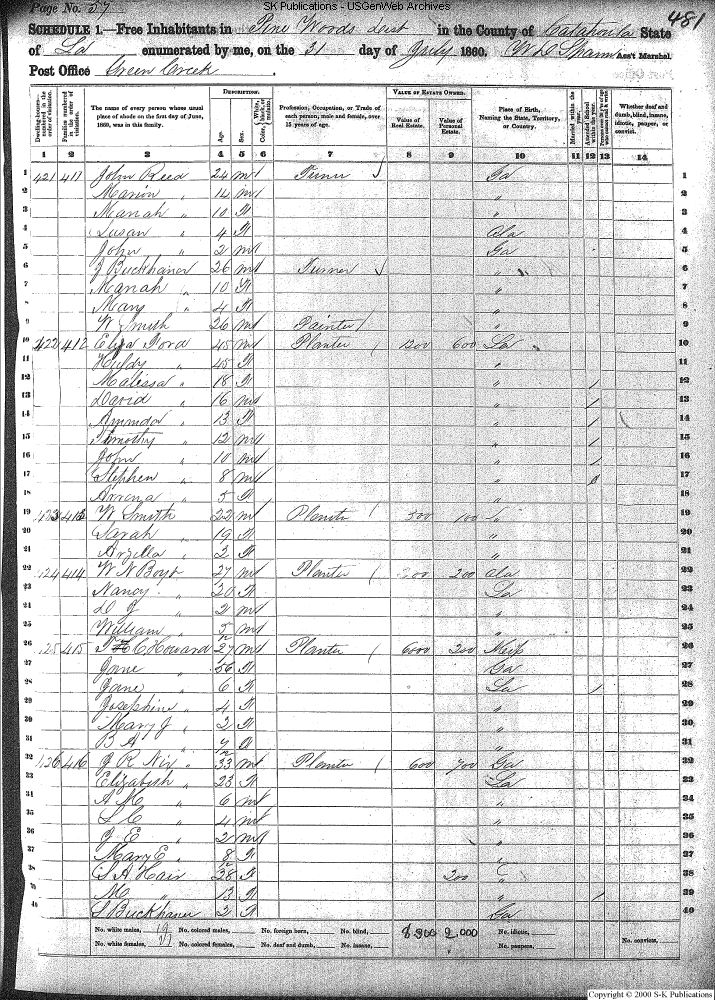 SK Publications - USGenWeb Archives
Page No. 57
481
SCHEDULE 1.—Free Inhabitants in Pine Woods Dist in the County of Catahoula State
of La enumerated by me, on the 31 day of July 1860. Ass't Marshal.
Post Office Green Creek.
Dwelling-houses—numbered in the order of visitation.
Families numbered in the order of visitation.
The name of every person whose usual place of abode on the first day of June, 1860, was in this family.
DESCRIPTION.
Age.
Sex.
White, black, or mulatto.
Color,
Profession, Occupation, or Trade of each person, male and female, over 15 years of age.
VALUE OF ESTATE OWNED.
Value of Real Estate.
Value of Personal Estate.
Place of Birth, Naming the State, Territory, or Country.
Married within the year.
Attended School within the year.
Whether deaf and dumb, blind, insane, idiotic, pauper, or convict.
1 2 3 4 5 6 7 8 9 10 11 12 13 14
1 421 411 John Reed 24 m Ga 1
2 Marion " 14 m " 2
3 Mariah " 10 f " 3
4 Susan " 4 f Ala 4
5 John " 2 m Ga 5
6 J Buckhaner 26 m Turner " 6
7 Mariah " 10 f " 7
8 Mary " 4 f " 8
9 W Smith 26 m Painter " 9
10 422 412 Ford 45 m Planter 1200 600 La 10
11 " 45 f " 11
12 Malissa " 18 f " / 12
13 David " 16 m " / 13
14 Amanda " 13 f " / 14
15 Timothy " 12 m " / 15
16 John " 10 m " / 16
17 Stephen " 8 m " 17
18 " 5 f " 18
19 423 413 W Smith 22 m Planter 500 100 " 19
20 Sarah " 19 f " 20
21 Arzilla " 2 f " 21
22 424 414 W N Boyt 27 m Planter 200 200 Ala 22
23 Nancy " 20 f La 23
24 D J " 2 m " 24
25 William " 5/12 m " 25
26 125 415 C Howard 27 m Planter 6000 300 Miss 26
27 Jane " 56 f Ga 27
28 Jane " 6 f La / 28
29 Josephine " 4 f " 29
30 Mary J " 2 f " 30
31 B A " 7/12 " 31
32 126 416 J R Nix 33 m Planter 600 700 Ga 32
33 Elizabeth " 23 f La 33
34 A M " 6 m " 34
35 S C " 4 m " 35
36 J E " 2 m " 36
37 Mary E " 8/12 f " 37
38 S A Hair 28 f 200 38
39 M " 13 f " / 39
40 S Buckhaner 2 f La 40
No. white males, 19 No. colored males, No. foreign born, No. blind, 8,900 2,000 No. idiotic,
No. white females, 21 No. colored females, No. deaf and dumb, No. insane, No. paupers, No. convicts,
Copyright © 2000 S-K Publications